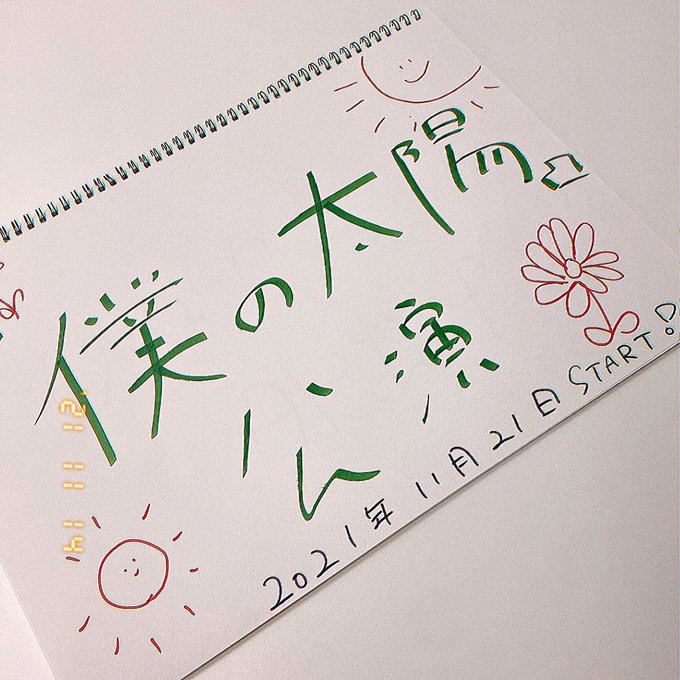 僕の太陽
公演
2021年11月21日START!
21 11 14